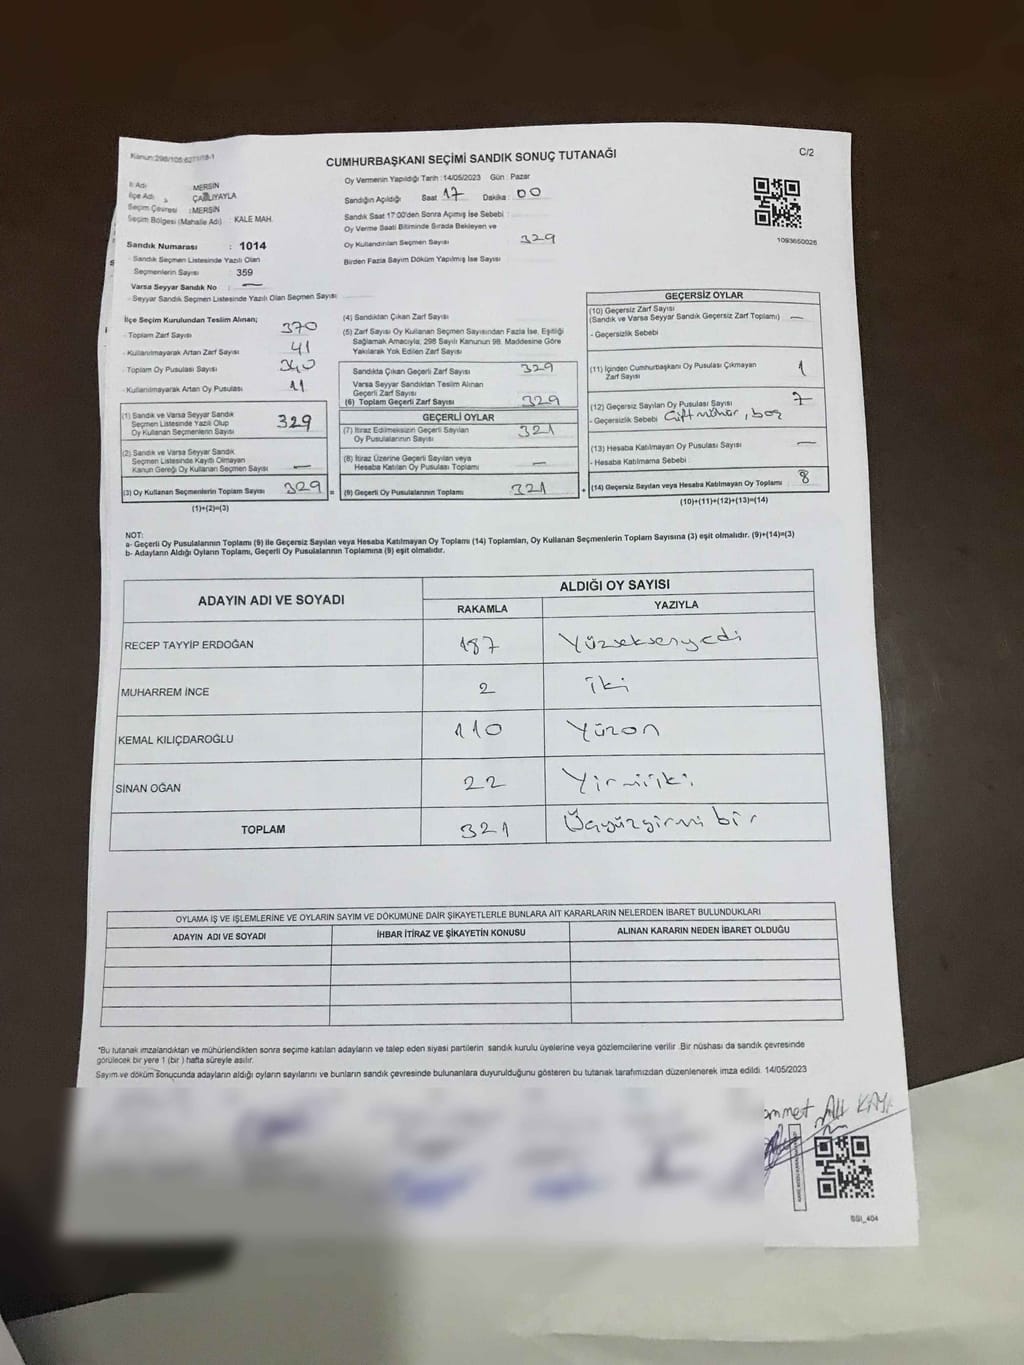 CUMHURBAŞKANI SEÇİMİ SANDIK SONUÇ TUTANAĞI
C/2
İl Adı MERSİN
İlçe Adı ÇAMLIYAYLA
Seçim Çevresi : MERSİN
Seçim Bölgesi (Mahalle Adı) : KALE MAH.
Sandık Numarası : 1014
- Sandık Seçmen Listesinde Yazılı Olan
Seçmenlerin Sayısı : 359
Varsa Seyyar Sandık No : —
- Seyyar Sandık Seçmen Listesinde Yazılı Olan Seçmen Sayısı
Oy Vermenin Yapıldığı Tarih : 14/05/2023 Gün : Pazar
Sandığın Açıldığı Saat 17 Dakika : 00
Sandık Saat 17:00'den Sonra Açımış İse Sebebi :
Oy Verme Saati Bitiminde Sırada Bekleyen ve
Oy Kullandırılan Seçmen Sayısı : 329
Birden Fazla Sayım Döküm Yapılmış İse Sayısı
1093650026
İlçe Seçim Kurulundan Teslim Alınan;
- Toplam Zarf Sayısı 370
- Kullanılmayarak Artan Zarf Sayısı 41
- Toplam Oy Pusulası Sayısı 340
- Kullanılmayarak Artan Oy Pusulası 11
(1) Sandık ve Varsa Seyyar Sandık
Seçmen Listesinde Yazılı Olup
Oy Kullanan Seçmenlerin Sayısı 329
(2) Sandık ve Varsa Seyyar Sandık
Seçmen Listesinde Kayıtlı Olmayan
Kanun Gereği Oy Kullanan Seçmen Sayısı —
(3) Oy Kullanan Seçmenlerin Toplam Sayısı 329 =
(1)+(2)=(3)
(4) Sandıktan Çıkan Zarf Sayısı
(5) Zarf Sayısı Oy Kullanan Seçmen Sayısından Fazla İse, Eşitliği
Sağlamak Amacıyla, 298 Sayılı Kanunun 98. Maddesine Göre
Yakılarak Yok Edilen Zarf Sayısı
Sandıkta Çıkan Geçerli Zarf Sayısı 329
Varsa Seyyar Sandıktan Teslim Alınan
Geçerli Zarf Sayısı
(6) Toplam Geçerli Zarf Sayısı 329
GEÇERLİ OYLAR
(7) İtiraz Edilmeksizin Geçerli Sayılan
Oy Pusulalarının Sayısı 321
(8) İtiraz Üzerine Geçerli Sayılan veya
Hesaba Katılan Oy Pusulası Toplamı —
(9) Geçerli Oy Pusulalarının Toplamı 321 +
GEÇERSİZ OYLAR
(10) Geçersiz Zarf Sayısı
(Sandık ve Varsa Seyyar Sandık Geçersiz Zarf Toplamı) —
- Geçersizlik Sebebi
(11) İçinden Cumhurbaşkanı Oy Pusulası Çıkmayan
Zarf Sayısı 1
(12) Geçersiz Sayılan Oy Pusulası Sayısı 7
- Geçersizlik Sebebi Çift mühür, boş
(13) Hesaba Katılmayan Oy Pusulası Sayısı —
- Hesaba Katılmama Sebebi
(14) Geçersiz Sayılan veya Hesaba Katılmayan Oy Toplamı 8
(10)+(11)+(12)+(13)=(14)
NOT:
a- Geçerli Oy Pusulalarının Toplamı (9) ile Geçersiz Sayılan veya Hesaba Katılmayan Oy Toplamı (14) Toplamları, Oy Kullanan Seçmenlerin Toplam Sayısına (3) eşit olmalıdır. (9)+(14)=(3)
b- Adayların Aldığı Oyların Toplamı, Geçerli Oy Pusulalarının Toplamına (9) eşit olmalıdır.
ADAYIN ADI VE SOYADI ALDIĞI OY SAYISI
RAKAMLA YAZIYLA
RECEP TAYYİP ERDOĞAN 187 Yüzseksenyedi
MUHARREM İNCE 2 iki
KEMAL KILIÇDAROĞLU 110 Yüzon
SİNAN OĞAN 22 Yirmiiki
TOPLAM 321 Üçyüzyirmi bir
OYLAMA İŞ VE İŞLEMLERİNE VE OYLARIN SAYIM VE DÖKÜMÜNE DAİR ŞİKAYETLERLE BUNLARA AİT KARARLARIN NELERDEN İBARET BULUNDUKLARI
ADAYIN ADI VE SOYADI İHBAR İTİRAZ VE ŞİKAYETİN KONUSU ALINAN KARARIN NEDEN İBARET OLDUĞU
*Bu tutanak imzalandıktan ve mühürlendikten sonra seçime katılan adayların ve talep eden siyasi partilerin sandık kurulu üyelerine veya gözlemcilerine verilir .Bir nüshası da sandık çevresinde
görülecek bir yere 1 (bir ) hafta süreyle asılır.
Sayım ve döküm sonucunda adayların aldığı oyların sayılarını ve bunların sandık çevresinde bulunanlara duyurulduğunu gösteren bu tutanak tarafımızdan düzenlenerek imza edildi. 14/05/2023
ommet Ali KAYA